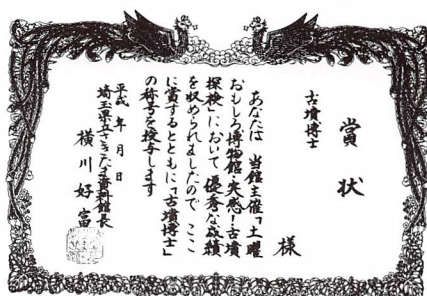 賞状
古墳博士
様
あなたは 当館主催「土曜
おもしろ博物館・実感!古墳
探検」において 優秀な成績
を収められましたので ここ
に賞するとともに「古墳博士」
の称号を授与します
平成 年 月 日
埼玉県立さきたま資料館長
横川好富